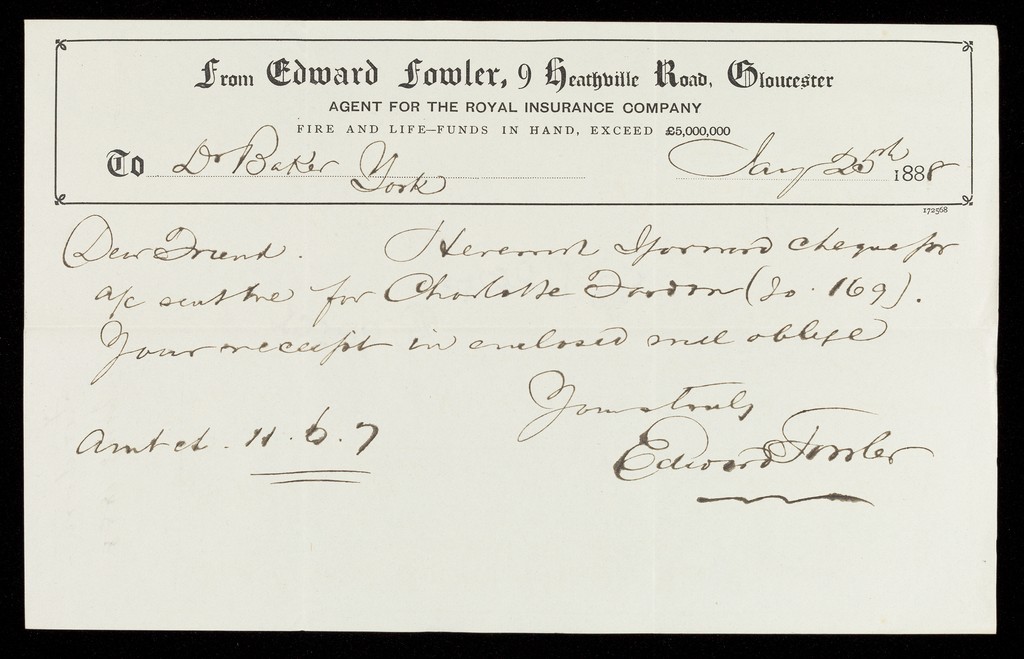 From Edward Fowler, 9 Heathville Road, Gloucester
AGENT FOR THE ROYAL INSURANCE COMPANY
FIRE AND LIFE—FUNDS IN HAND, EXCEED £5,000,000
To Dr Baker York Jany 25th 1888
172568
Dear Friend. Herewith I forward cheque for
a/c sent me for Charlotte Fardon (Fo. 169).
Your receipt in enclosed will oblige
Yours truly
Amt ct. 11.6.7
Edward Fowler